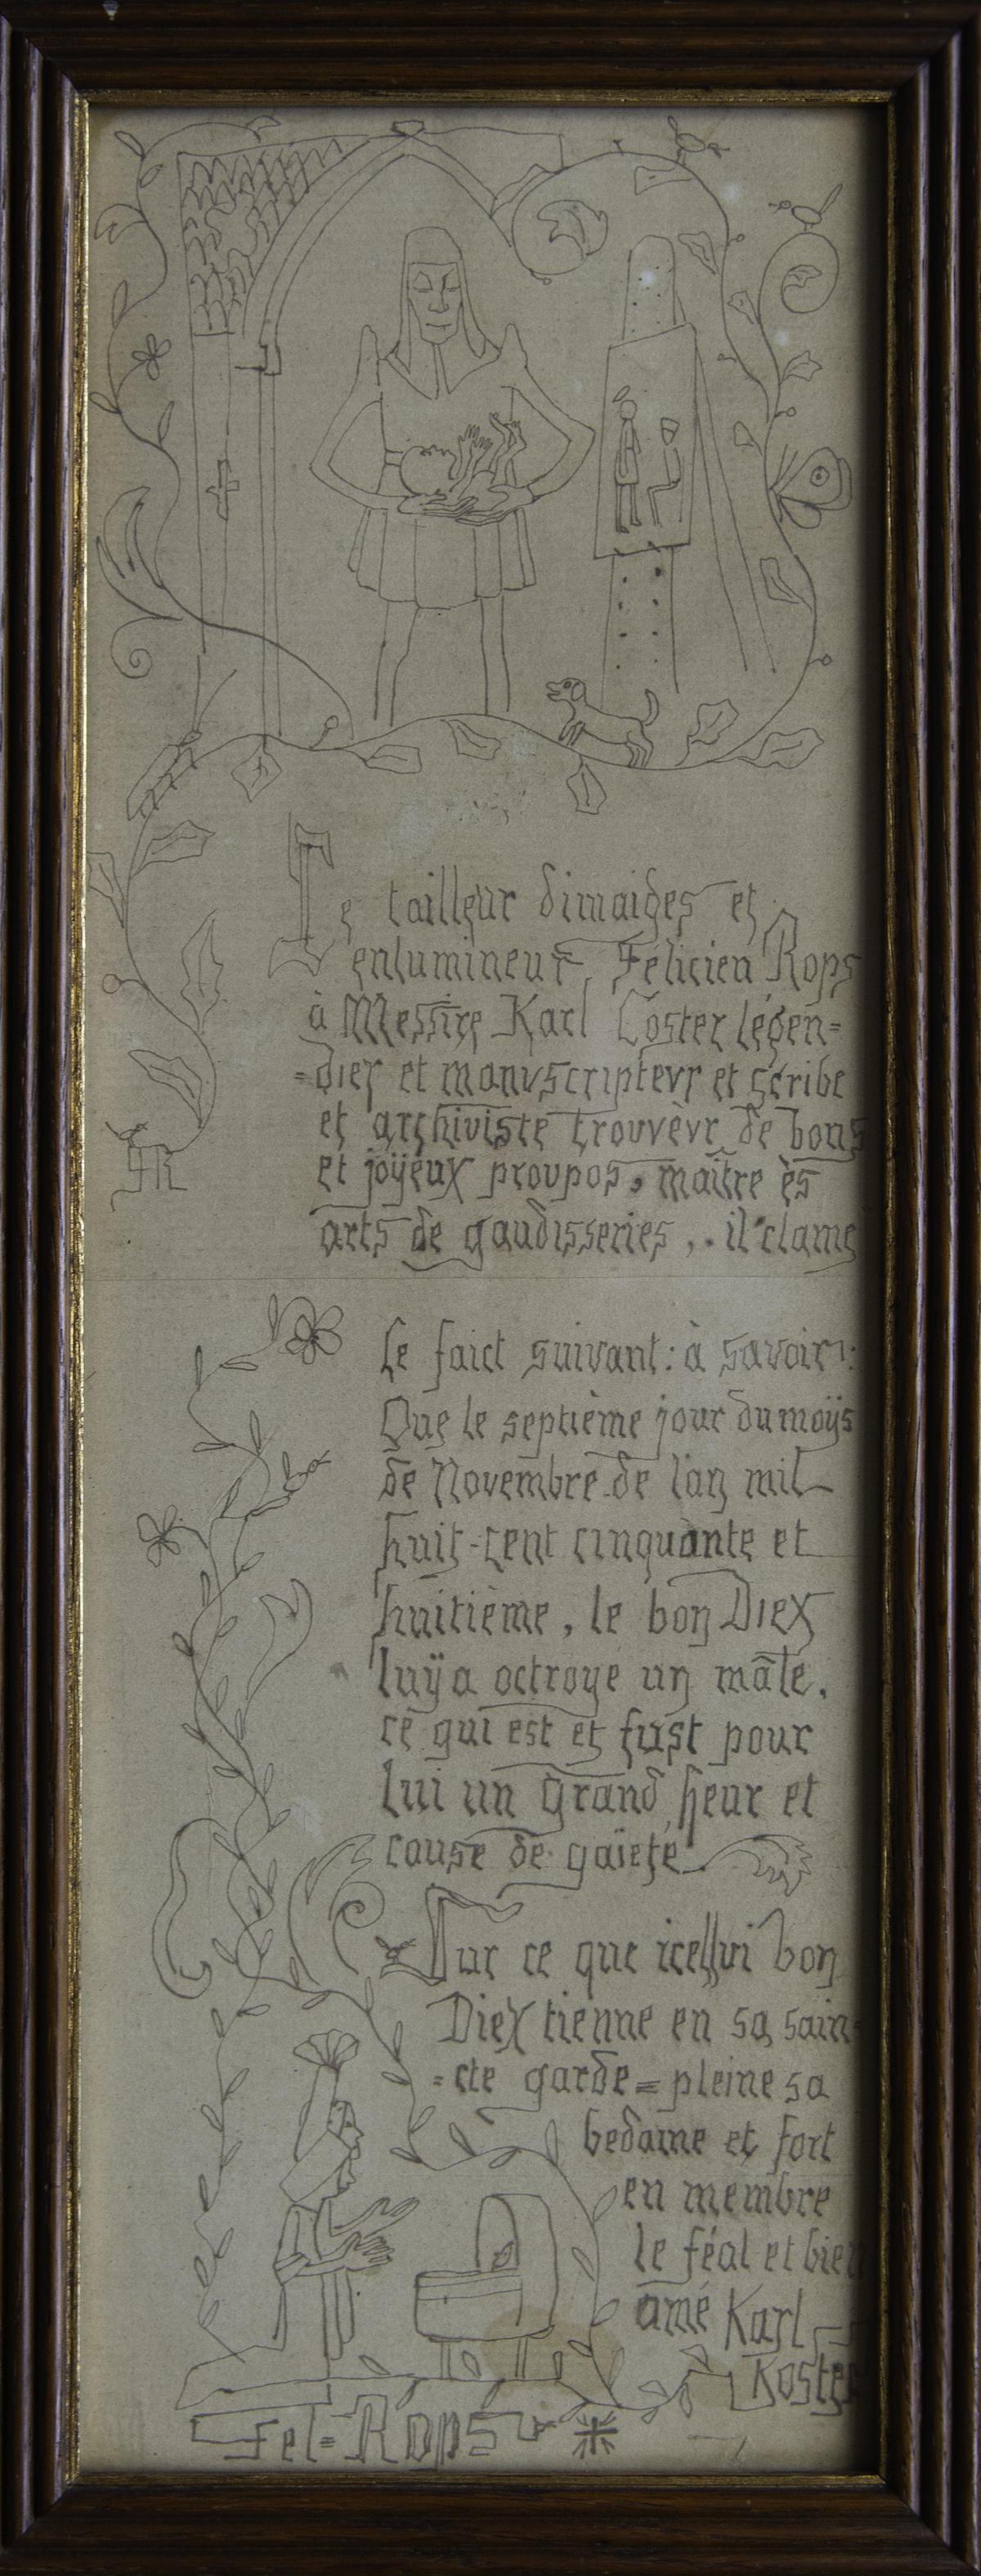 Le tailleur dimaiges et
enlumineur Félicien Rops
à Messire Karl Coster légen=
=dier et manvscriptevr et scribe
et archiviste trouvèvr de bons
et joÿeux proupos, maître ès
arts de gaudisseries, . il clame
FR
le faict suivant : à savoir :
Que le septième jour du moÿs
de Novembre de l'an mil
huit-cent cinquante et
huitième, le bon Diex
luÿ a octroye un mâle.
ce qui est et fust pour
lui un grand heur et
cause de gaieté.
Sur ce que icellui bon
Diex tienne en sa sain=
=cte garde = pleine sa
bedaine et fort
en membre
le féal et bien
amé Karl
Koster
Fel=Rops